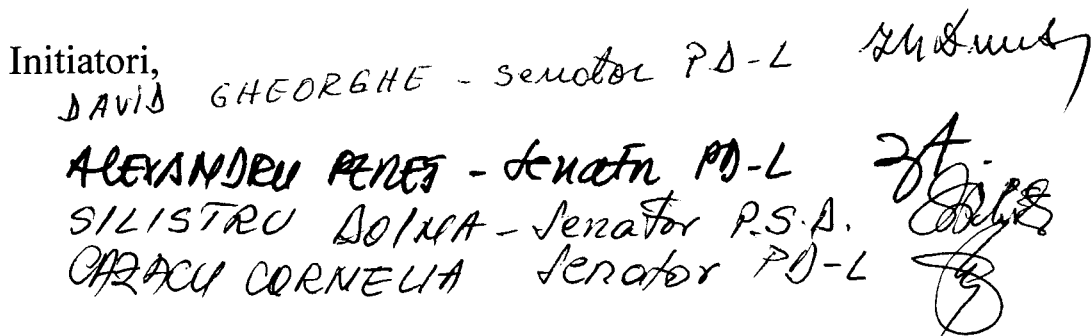 Initiatori,
DAVID GHEORGHE - senator PD-L
ALEXANDRU PEREȘ - senator PD-L
SILISTRU DOINA - senator P.S.D.
CAZACU CORNELIA senator PD-L